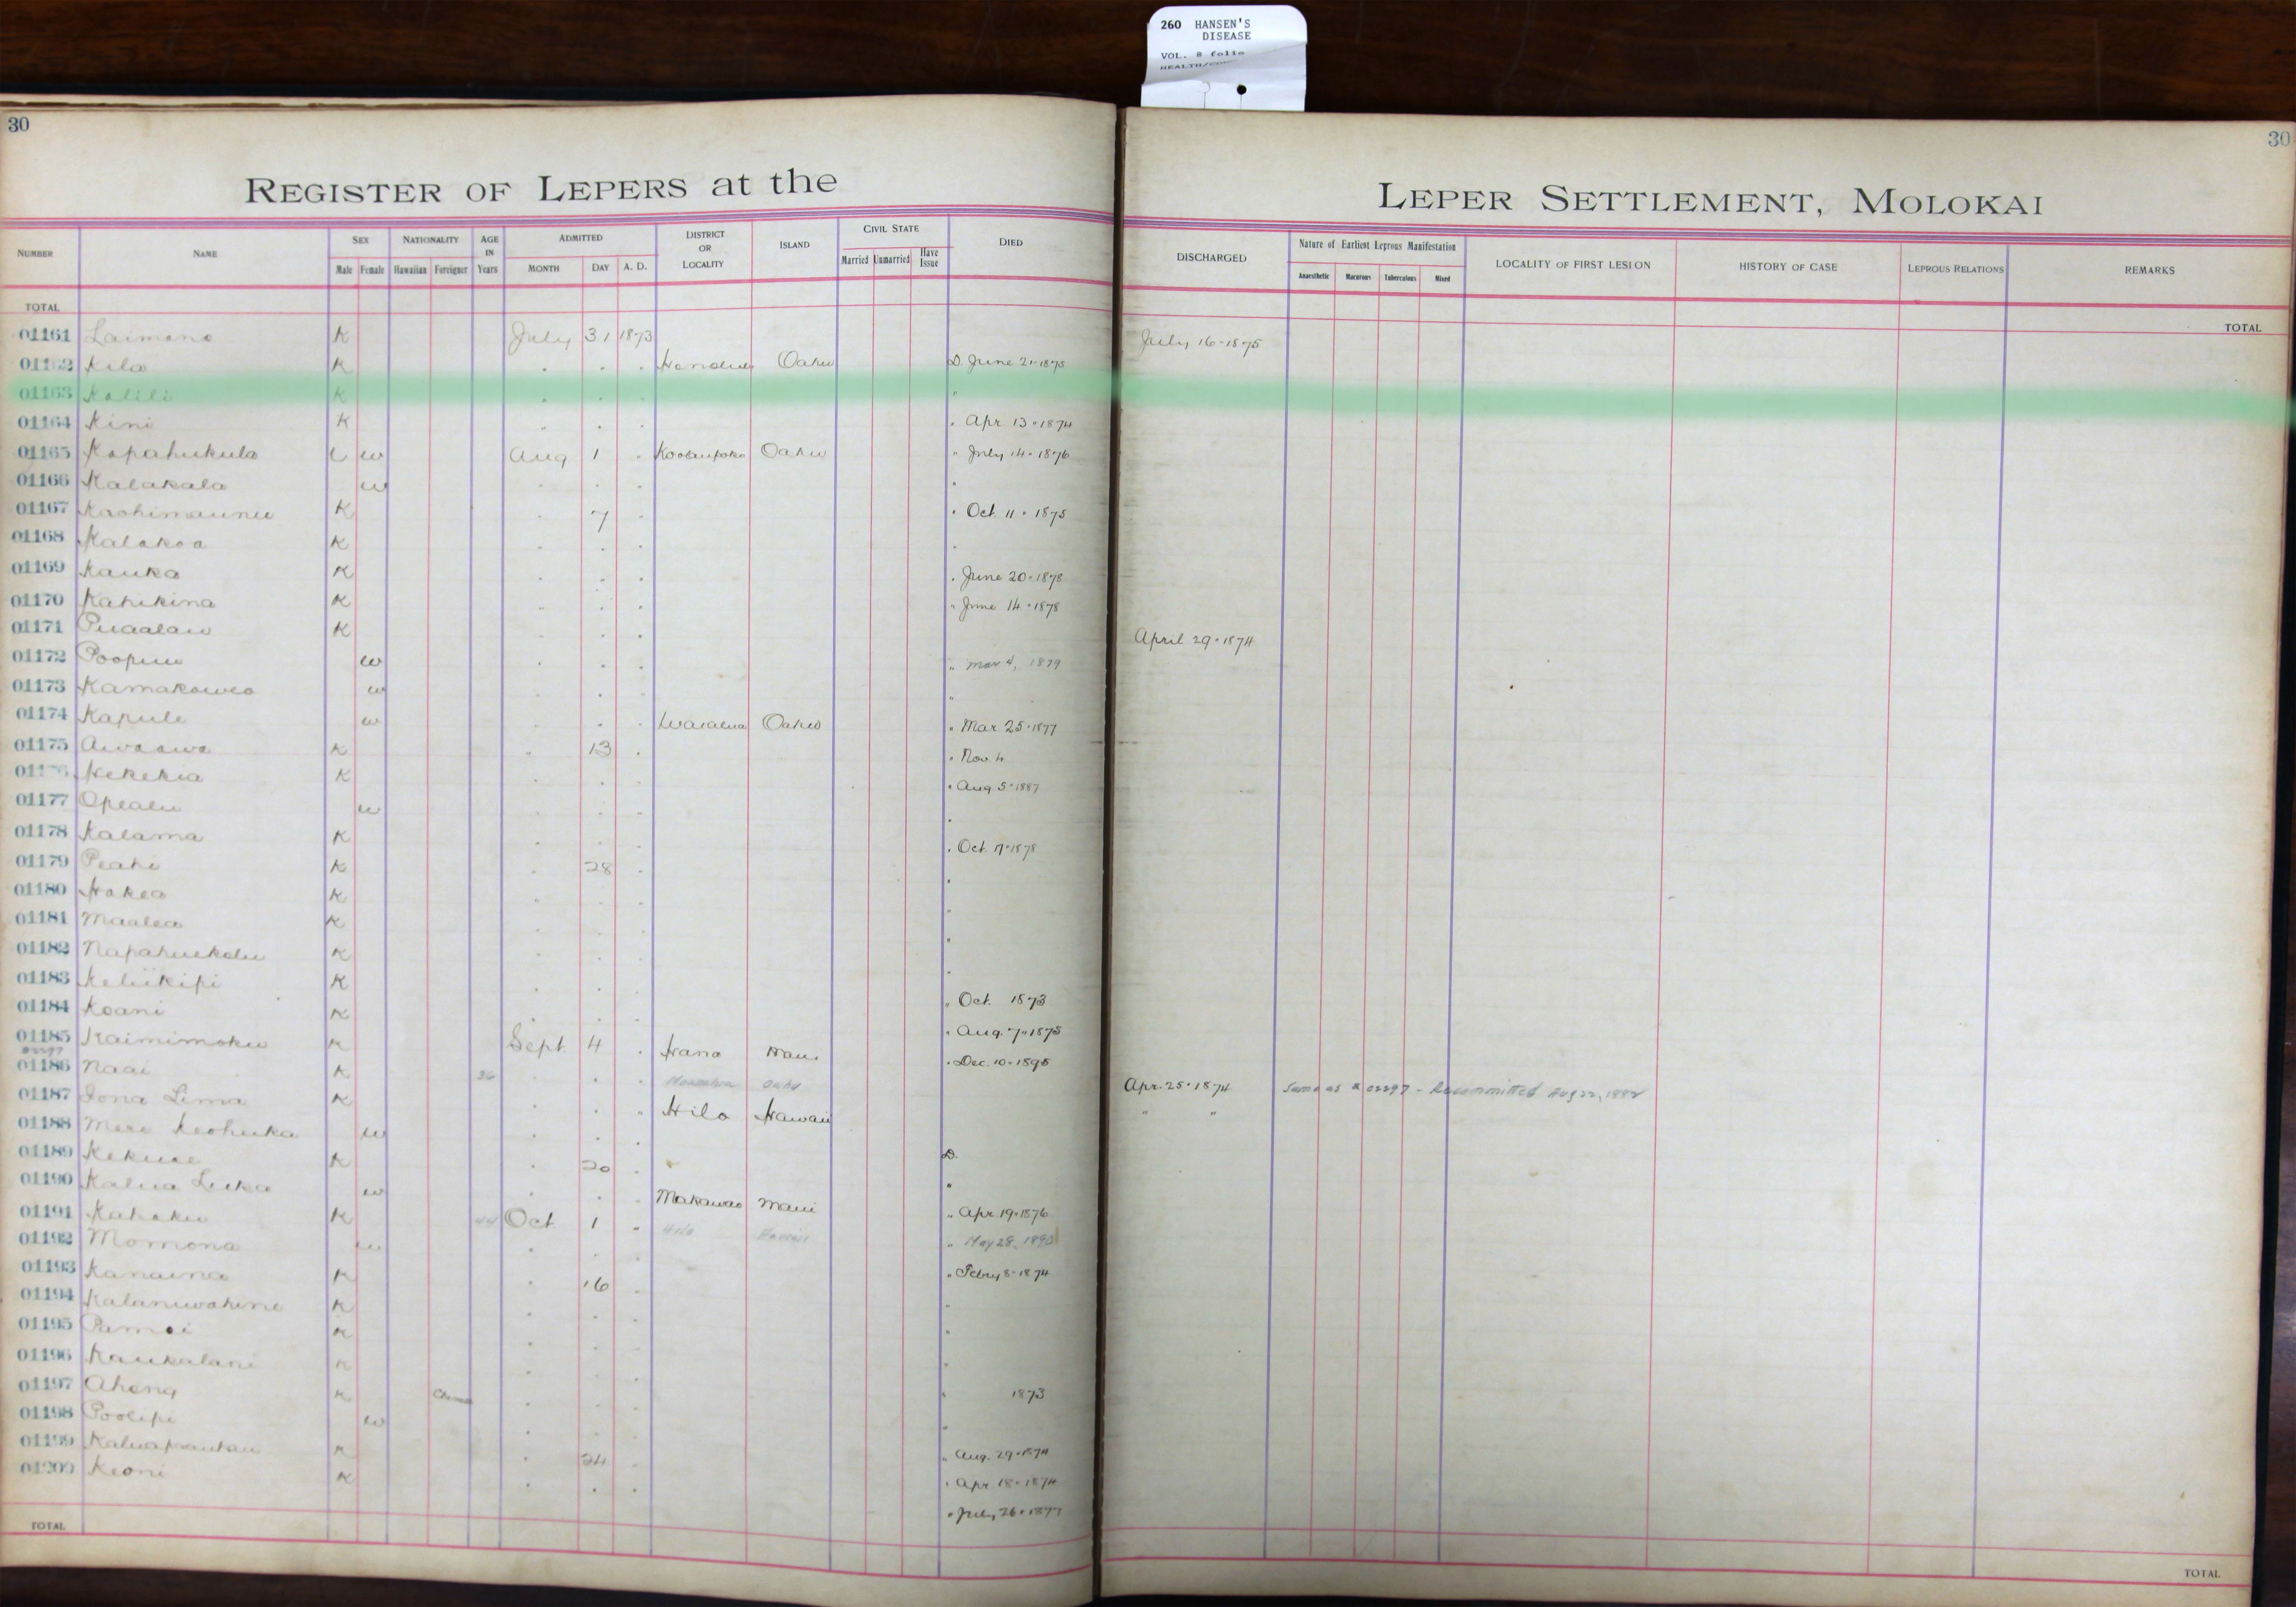 260 HANSEN'S
DISEASE
VOL. 8 folio
30
30
REGISTER OF LEPERS at the
LEPER SETTLEMENT, MOLOKAI
NUMBER NAME SEX Male Female NATIONALITY Hawaiian Foreigner AGE IN Years ADMITTED MONTH DAY A. D. DISTRICT OR LOCALITY ISLAND CIVIL STATE Married Unmarried Have Issue DIED
DISCHARGED Nature of Earliest Leprous Manifestation Anaesthetic Macurous Tuberculous Mixed LOCALITY OF FIRST LESION HISTORY OF CASE LEPROUS RELATIONS REMARKS
TOTAL
TOTAL
01161 Laimana K July 31 1873 July 16-1875
01162 Kila K . . . Honolulu Oahu D. June 21-1875
01163 Kalili K . . . "
01164 Kini K . . . . Apr. 13-1874
01165 Kapahukula w Aug 1 . Koolaupoko Oahu " July 14-1876
01166 Kalakala w . . . "
01167 K . 7 . " Oct. 11-1875
01168 Kalakoa K . . . .
01169 Kauka K . . . . June 20-1878
01170 Kahikina K . . . " June 14-1878
01171 Puaalau K . . . April 29-1874
01172 w . . . " Mar 4, 1879
01173 w . . . "
01174 Kapule w . . . Waialua Oahu " Mar. 25-1877
01175 Awaawa K . 13 . " Nov. 4
Kekekia K . . . " Aug. 5-1887
01177 Opealu w . . . .
01178 Kalama K . . . . Oct. 17-1878
01179 Peahi K . 28 . .
01180 Hakea K . . . "
01181 Maalea K . . . "
01182 Napahuekolu K . . . "
01183 Keliikipi K . . . " Oct. 1873
01184 Koani K . . . " Aug. 7-1875
01185 Kaimimoku K Sept. 4 . Hana Maui . Dec. 10-1895
01186 Naai K 36 . . . Oahu Apr. 25-1874 Same as # 02297 - Recommitted Aug 22, 1882
01187 Iona Lima K . . " Hilo Hawaii " "
01188 Mere Keohuka w . . .
01189 Kekuae K . 20 . D.
01190 Kalua Luka w . . . Makawao Maui "
01191 Kahaku K 44 Oct 1 " Hilo Hawaii " Apr. 19-1876
01192 Momona w . . " May 28, 1890
01193 Kanaina K . 16 . " Febry 8-1874
01194 Kalaniwahine K . . . "
01195 K . . . "
01196 Kaukalani K . . . "
01197 Ahong K . . . 1873
01198 Poolipi w . . . "
01199 K . 24 . " Aug. 29-1874
01200 Keoni K . . . " Apr. 18-1874
" July 26-1877
TOTAL
TOTAL